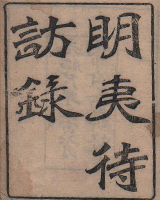 明夷待
訪録